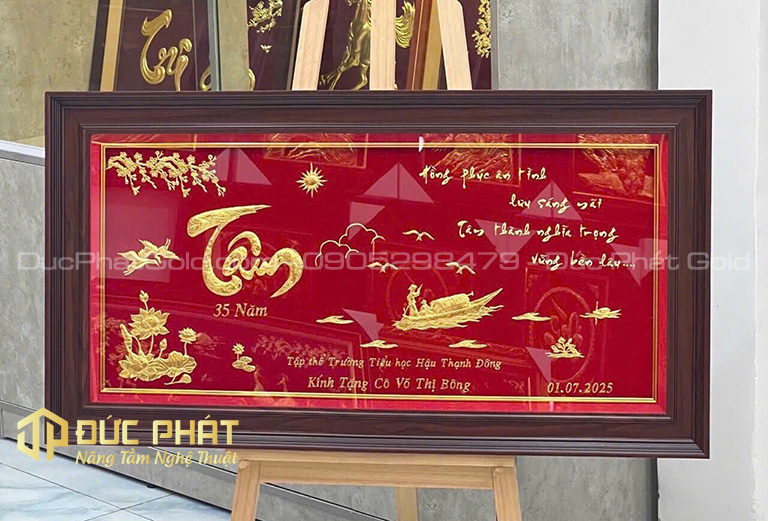 Trí
Hồng phúc ân tình
lưu sáng mãi
Tâm thành nghĩa trọng
vững bền lâu....
Tâm
35 Năm
DucPhatGold.com - 0905298479 - Duc Phát Gold
Tập thể Trường Tiểu học Hậu Thạnh Đông
Kính Tặng Cô Võ Thị Bông
01.07.2025
ĐỨC PHÁT
Nâng Tầm Nghệ Thuật